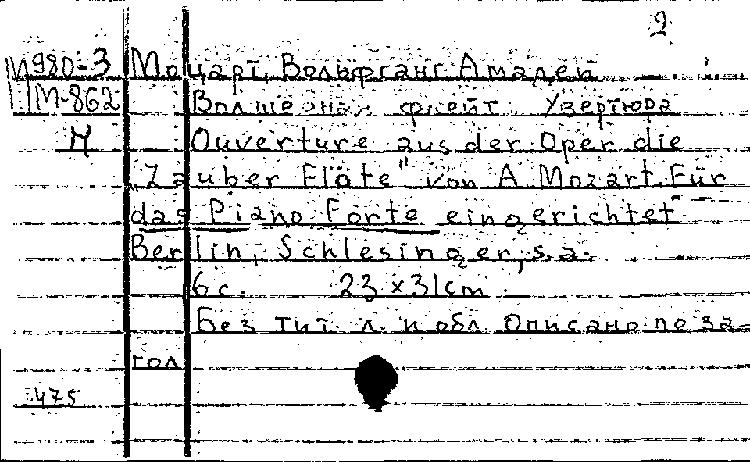 2
И980-3 Моцарт, Вольфганг Амадей
М-862 Волшебная флейта. Увертюра
Ouverture aus der Oper die
„Zauber Flöte" von A. Mozart. Für
das Piano Forte eingerichtet
Berlin, Schlesinger, s.a.
6 с. 23x31cm
Без тит. л. и обл. Описано по за-
гол.
475